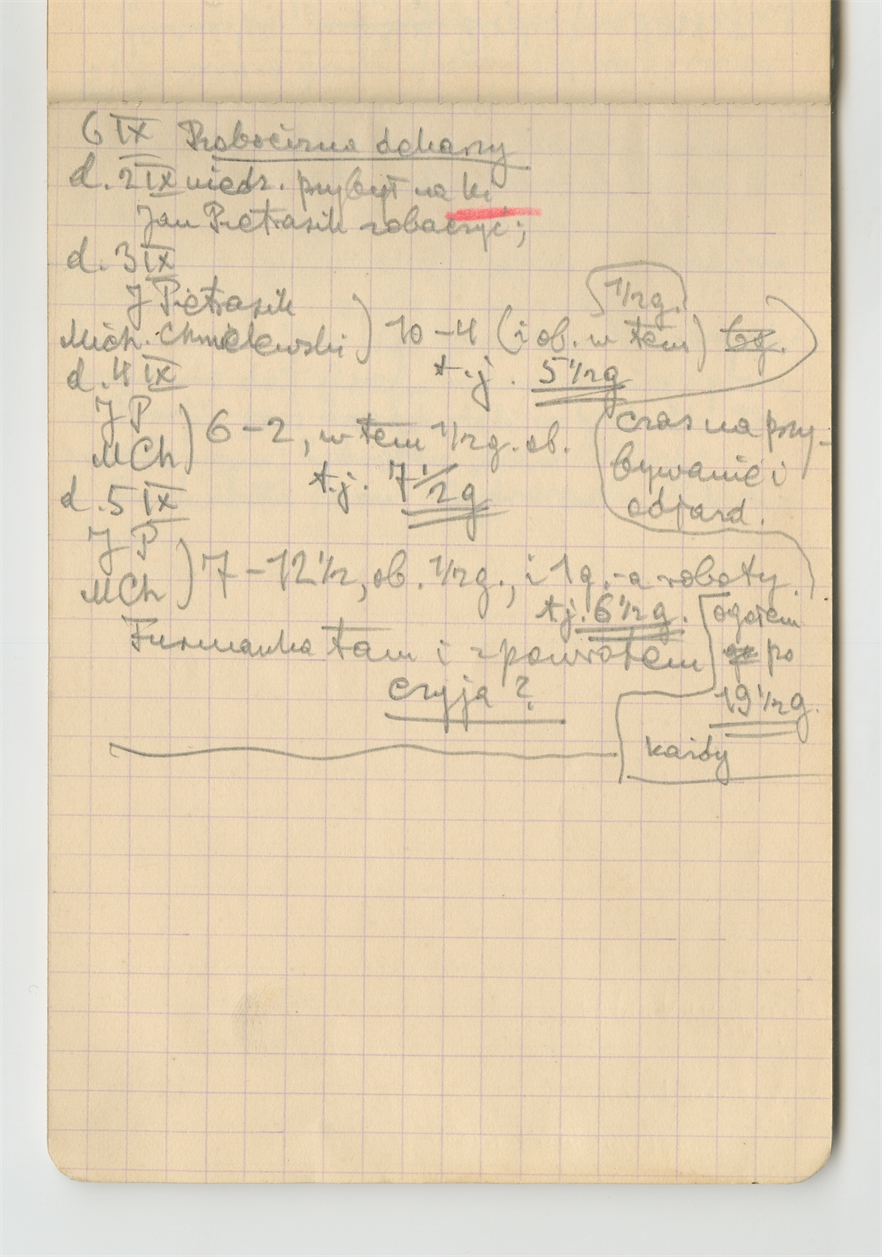 6 IX Robocizna dekarzy
d. 2 IX niedz. przybył na
Jan Pietrasik zobaczyć;
d. 3 IX
J Pietrasik
Mich. Chmielewski) 10-4 (i ob. w tem) 6g.
1/2g.
t.j. 5 1/2g
d. 4 IX
J P
MCh) 6-2, w tem 1/2g. ob.
t.j. 7 1/2g
czas na przy-
bywanie i
odjazd.
d. 5 IX
J P
MCh) 7-12 1/2, ob. 1/2g., i 1g.-a roboty
t.j. 6 1/2g.
Furmanka tam i z powrotem
czyja?
ogółem
po
19 1/2g.
każdy